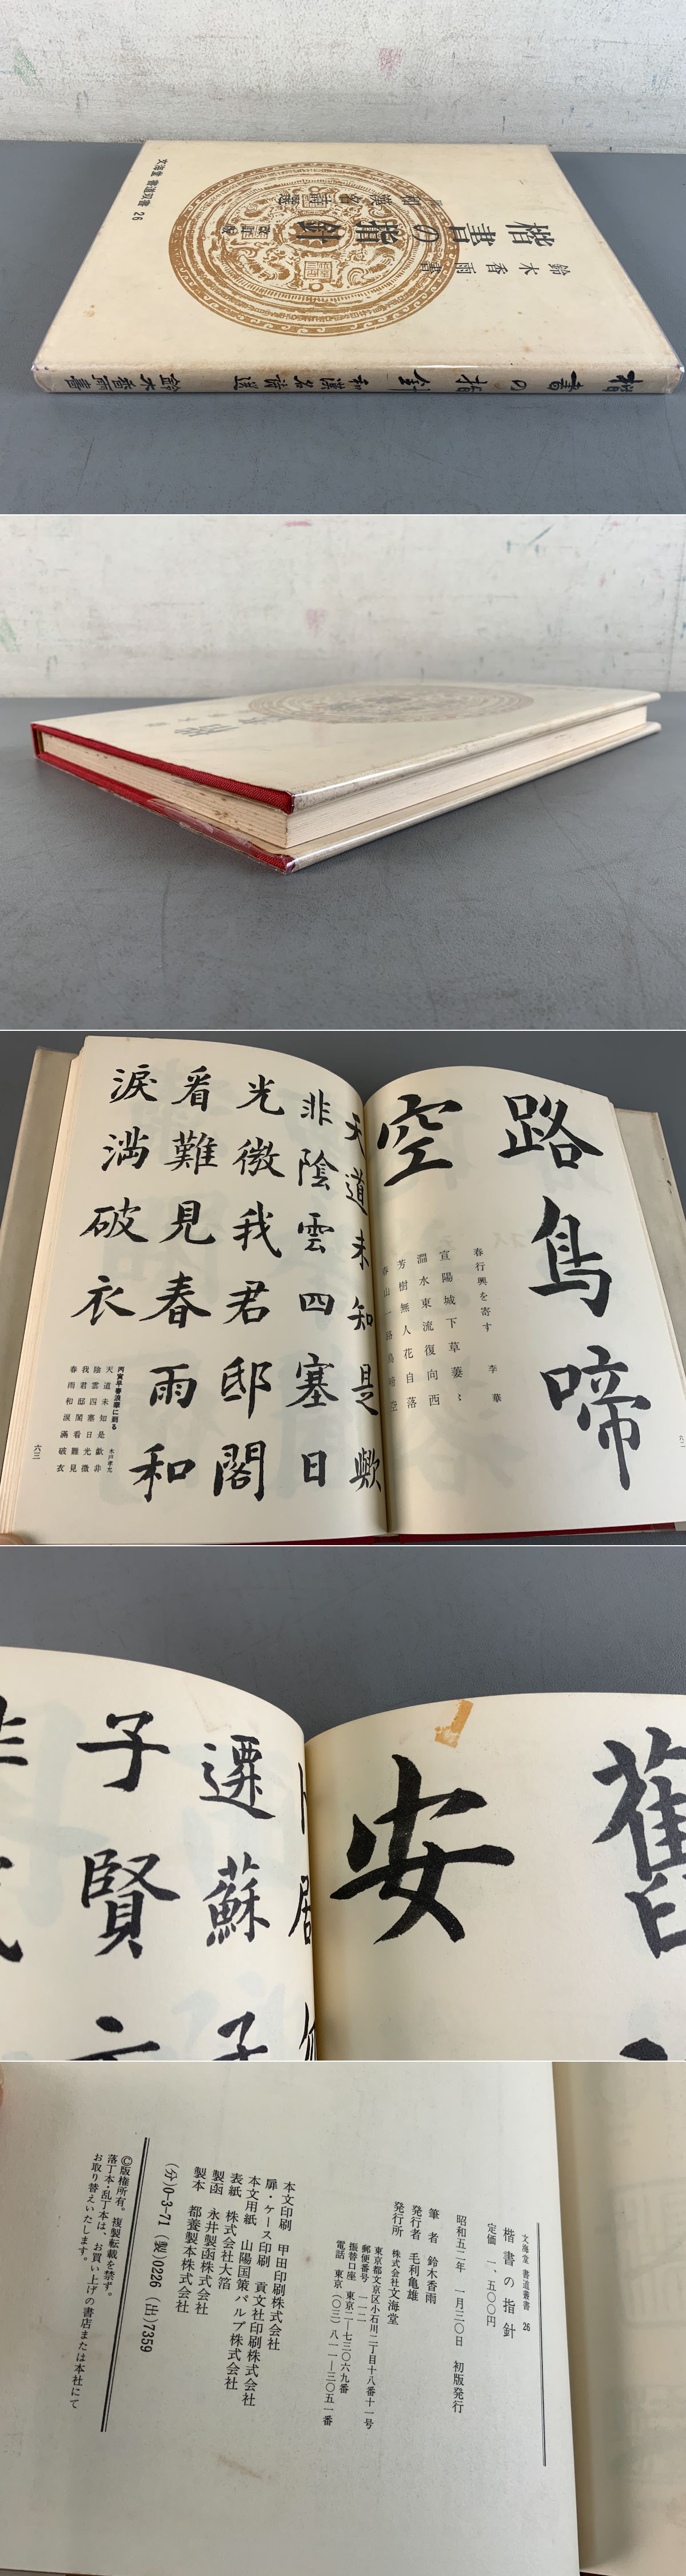 楷書の指針
和漢名詩選
鈴木香雨書
文海堂 書道双書 26
楷書の指針 和漢名詩選 鈴木香雨書
路鳥啼
空
春行興を寄す 李華
宜陽城下草萋〻
澗水東流復向西
芳樹無人花自落
春山一路鳥啼空
天道未知是歟
非陰雲四塞日
光微我君邸閣
看難見春雨和
涙満破衣
丙寅早春浪華に到る 木戸孝允
天道未知是歟非
陰雲四塞日光微
我君邸閣看難見
春雨和涙滿破衣
六三
舊
安
蘇子
子賢
文海堂 書道叢書 26
楷書の指針
定価 一、五〇〇円
昭和五二年 一月三〇日 初版発行
筆者 鈴木香雨
発行者 毛利亀雄
発行所 株式会社文海堂
東京都文京区小石川二丁目十八番十一号
郵便番号 一一二
振替口座 東京二―七三〇六九番
電話 東京(〇三)八一一―三〇五一番
本文印刷 甲田印刷株式会社
扉・ケース印刷 貢文社印刷株式会社
本文用紙 山陽国策パルプ株式会社
表紙 株式会社大箔
製函 永井製函株式会社
製本 都養製本株式会社
(分)0-3-71 (製)0226 (出)7359
©版権所有。複製転載を禁ず。
落丁本・乱丁本は、お買い上げの書店または本社にて
お取り替えいたします。